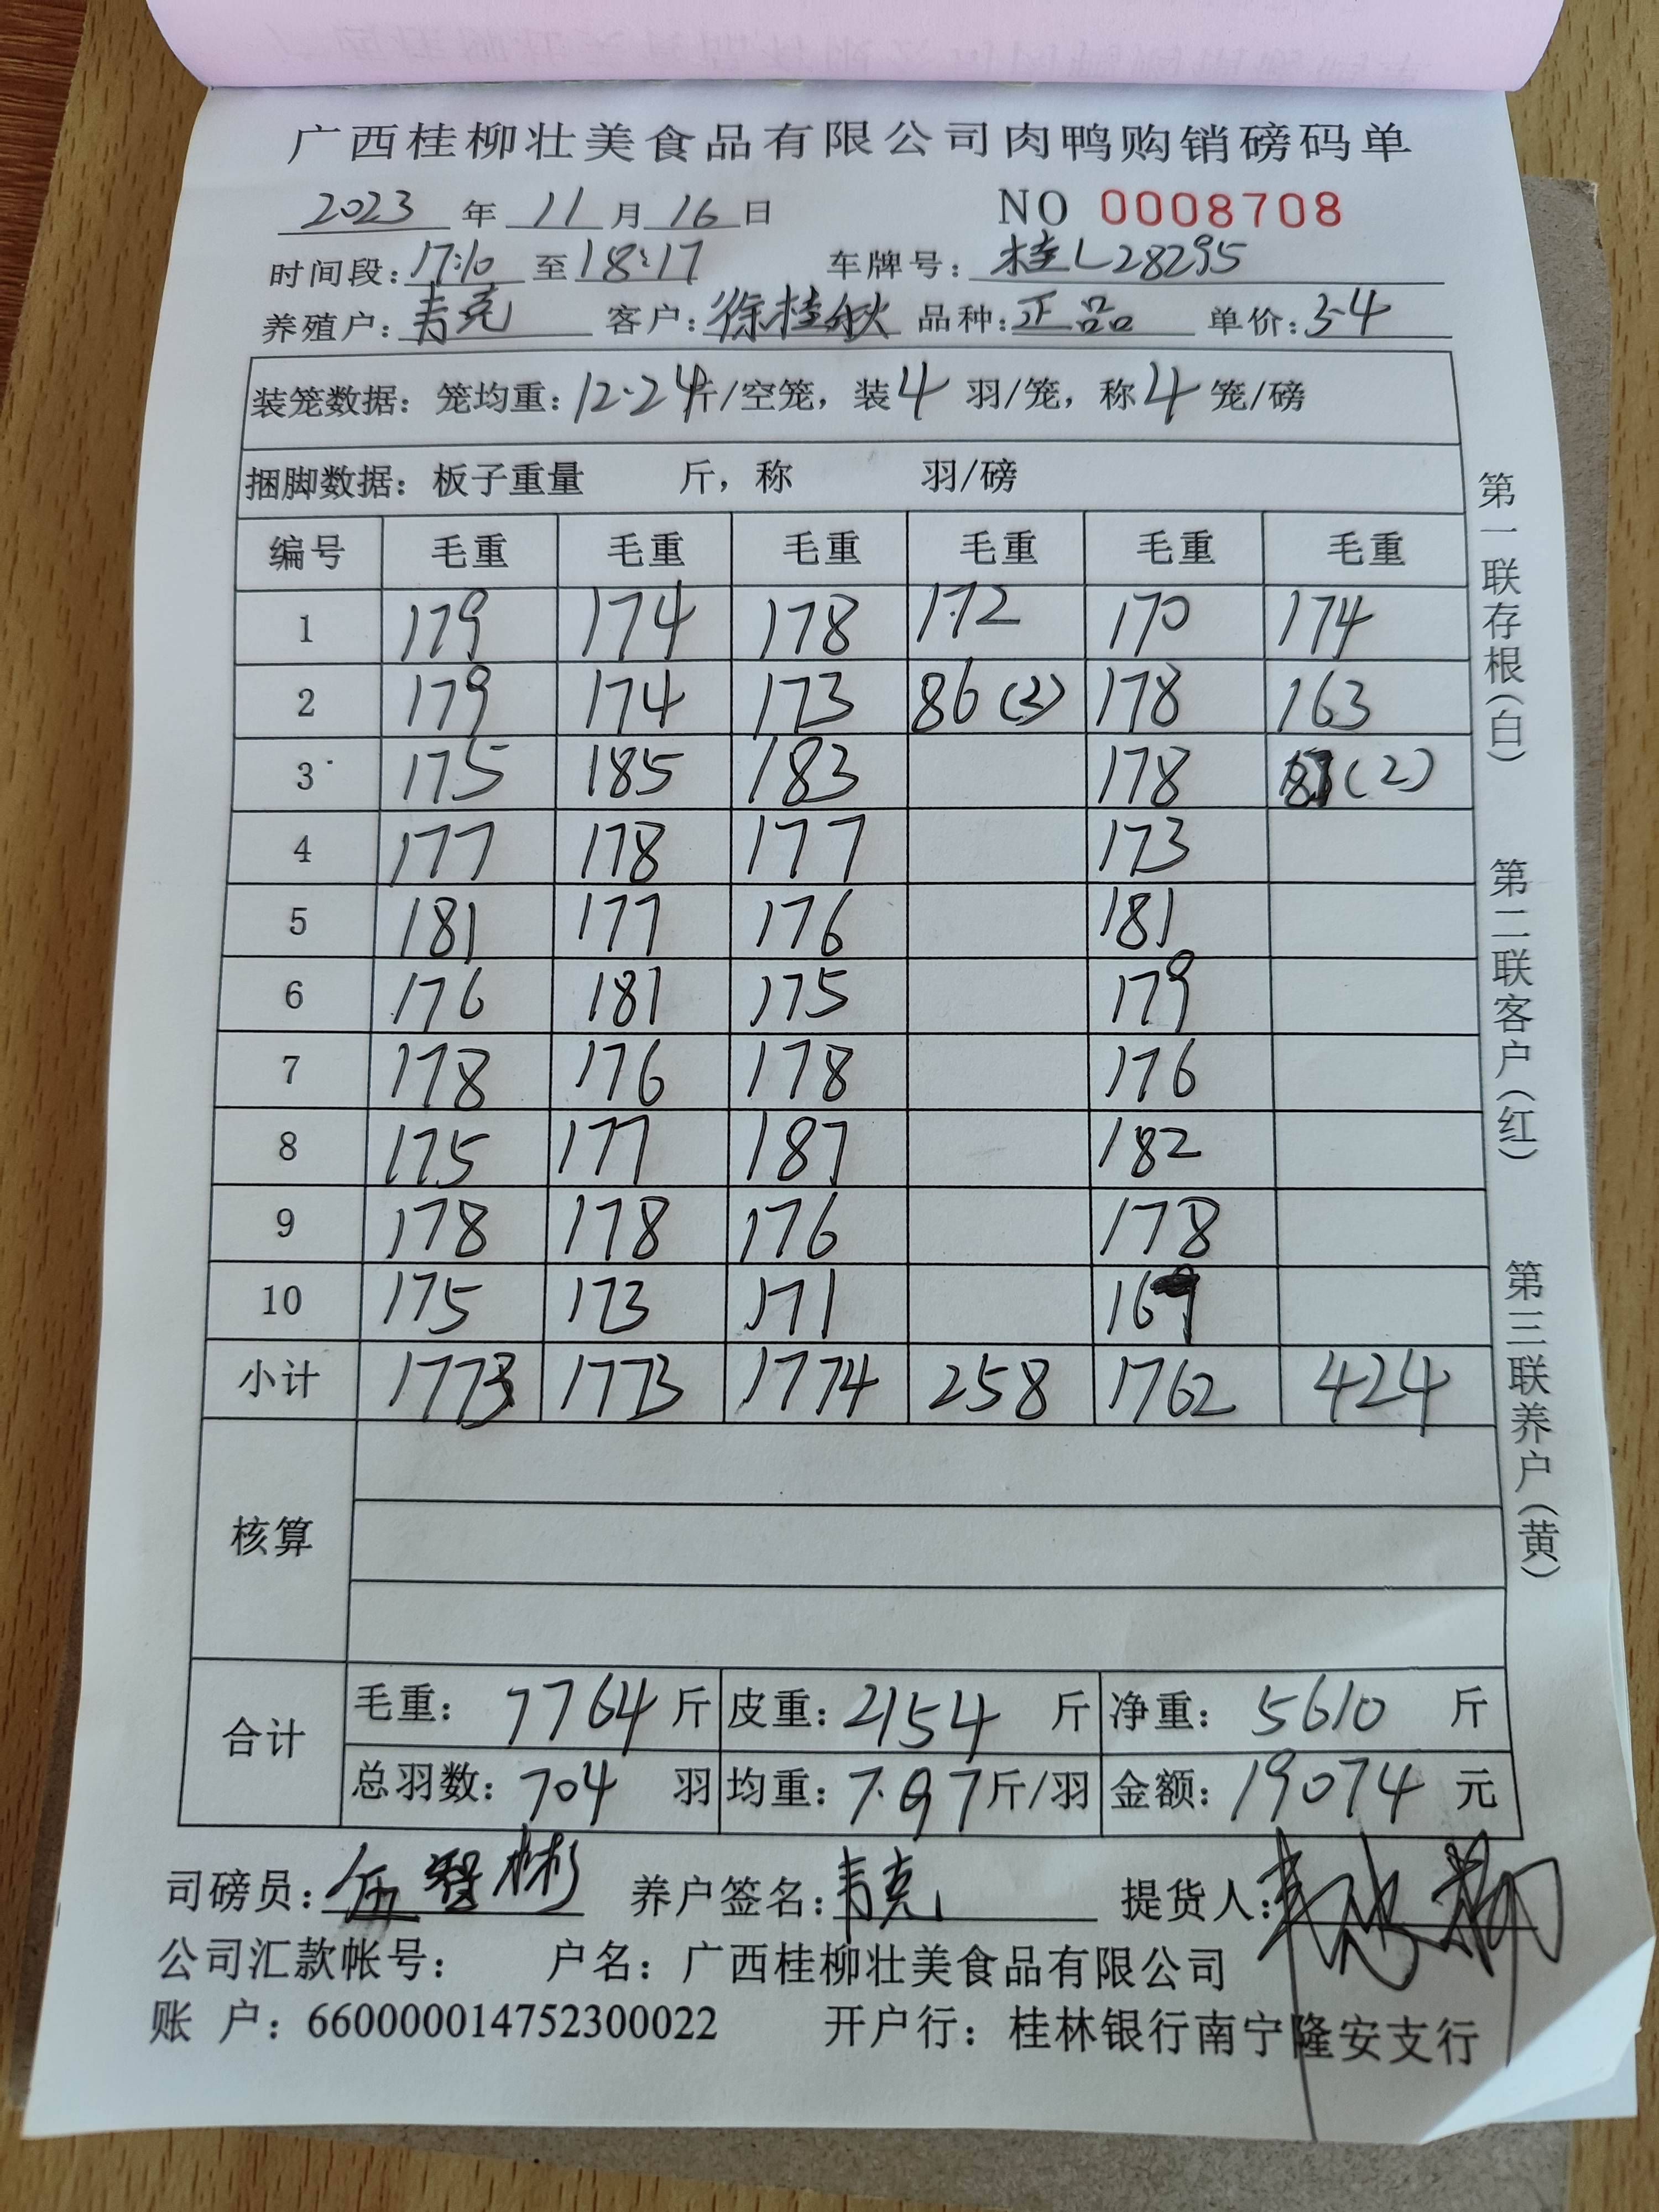 广西桂柳壮美食品有限公司肉鸭购销磅码单
2023 年 11 月 16 日 NO 0008708
时间段:17:10 至 18:17 车牌号: 桂L28295
养殖户: 韦克 客户: 徐桂秋 品种: 正品 单价: 3.4
装笼数据: 笼均重: 12.24斤/空笼, 装 4 羽/笼, 称 4 笼/磅
捆脚数据: 板子重量 斤, 称 羽/磅
编号 毛重 毛重 毛重 毛重 毛重 毛重
1 179 174 178 172 170 174
2 179 174 173 86(2) 178 163
3 175 185 183 178 87(2)
4 177 178 177 173
5 181 177 176 181
6 176 181 175 179
7 178 176 178 176
8 175 177 187 182
9 178 178 176 178
10 175 173 171 167
小计 1773 1773 1774 258 1762 424
核算
合计
毛重: 7764 斤 皮重: 2154 斤 净重: 5610 斤
总羽数: 704 羽 均重: 7.97 斤/羽 金额: 19074 元
司磅员: 伍智彬 养户签名: 韦克 提货人:
公司汇款帐号: 户名: 广西桂柳壮美食品有限公司
账 户: 660000014752300022 开户行: 桂林银行南宁隆安支行
第一联存根(白) 第二联客户(红) 第三联养户(黄)